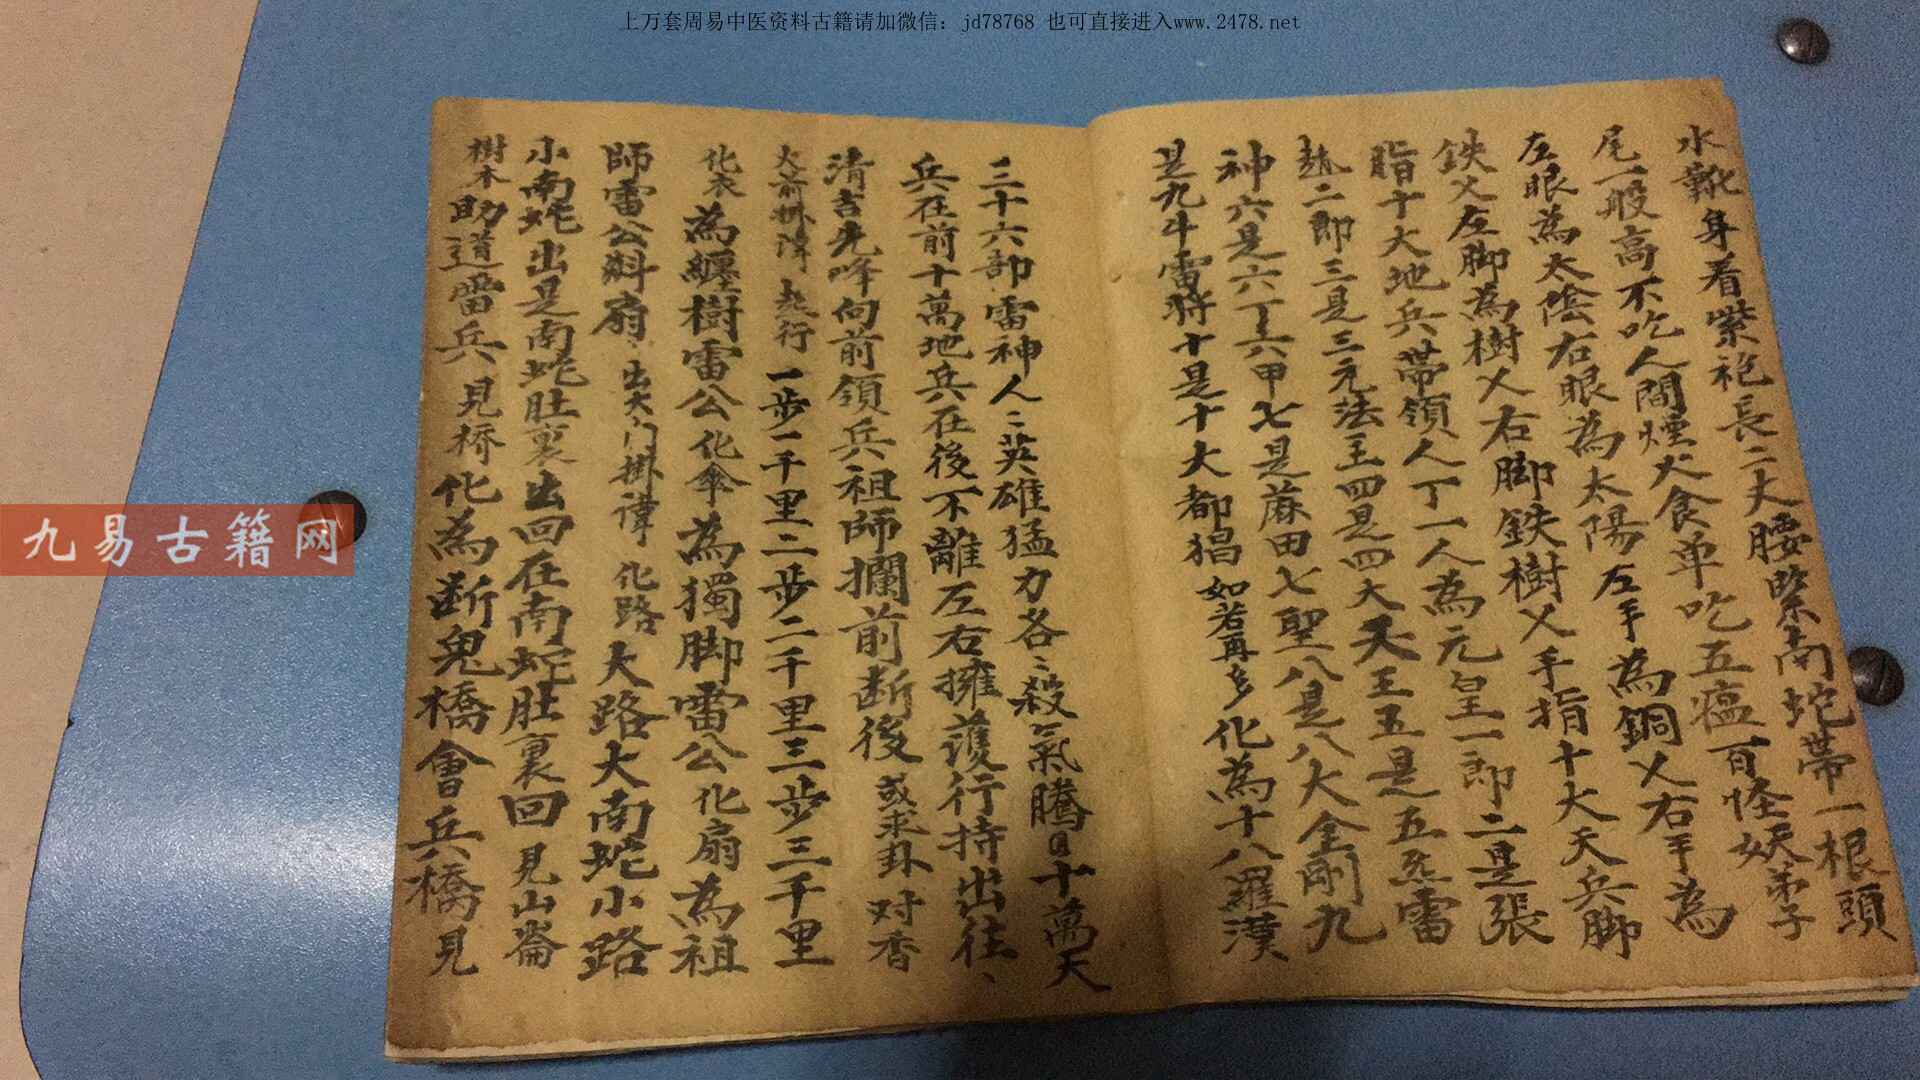 上万套周易中医资料古籍请加微信：jd78768 也可直接进入www.2478.net
水靴身着紫袍長二丈腰緊南蛇帶一根頭
尾一般高不吃人間煙火食单吃五瘟百怪妖弟子
左眼為太陰右眼為太陽左手為銅乂右手為
鉄乂左脚為樹乂右脚鉄樹乂手指十大天兵脚
脂十大地兵帶領人丁一人為元皇一郎二是張
趙二郎三是三元法主四是四大天王五是五雷
神六是六丁六甲七是蔴田七聖八是八大金剛九
是九牛雷将十是十大都猖如若再多化為十八羅漢
三十六部雷神人〻英雄猛力各〻殺氣騰日十萬天
兵在前十萬地兵在後不離左右擁護行持出往、
清吉先峰向前領兵祖師攔前断後或求卦对香
火前掛諱起行一步一千里二步二千里三步三千里
化衣為纏樹雷公化傘為獨脚雷公化扇為祖
師雷公斜扇出大门掛諱化路大路大南蛇小路
小南蛇出是南蛇肚裏出回在南蛇肚裏回見山崙
樹木助道雷兵見橋化為断鬼橋會兵橋見
九易古籍网